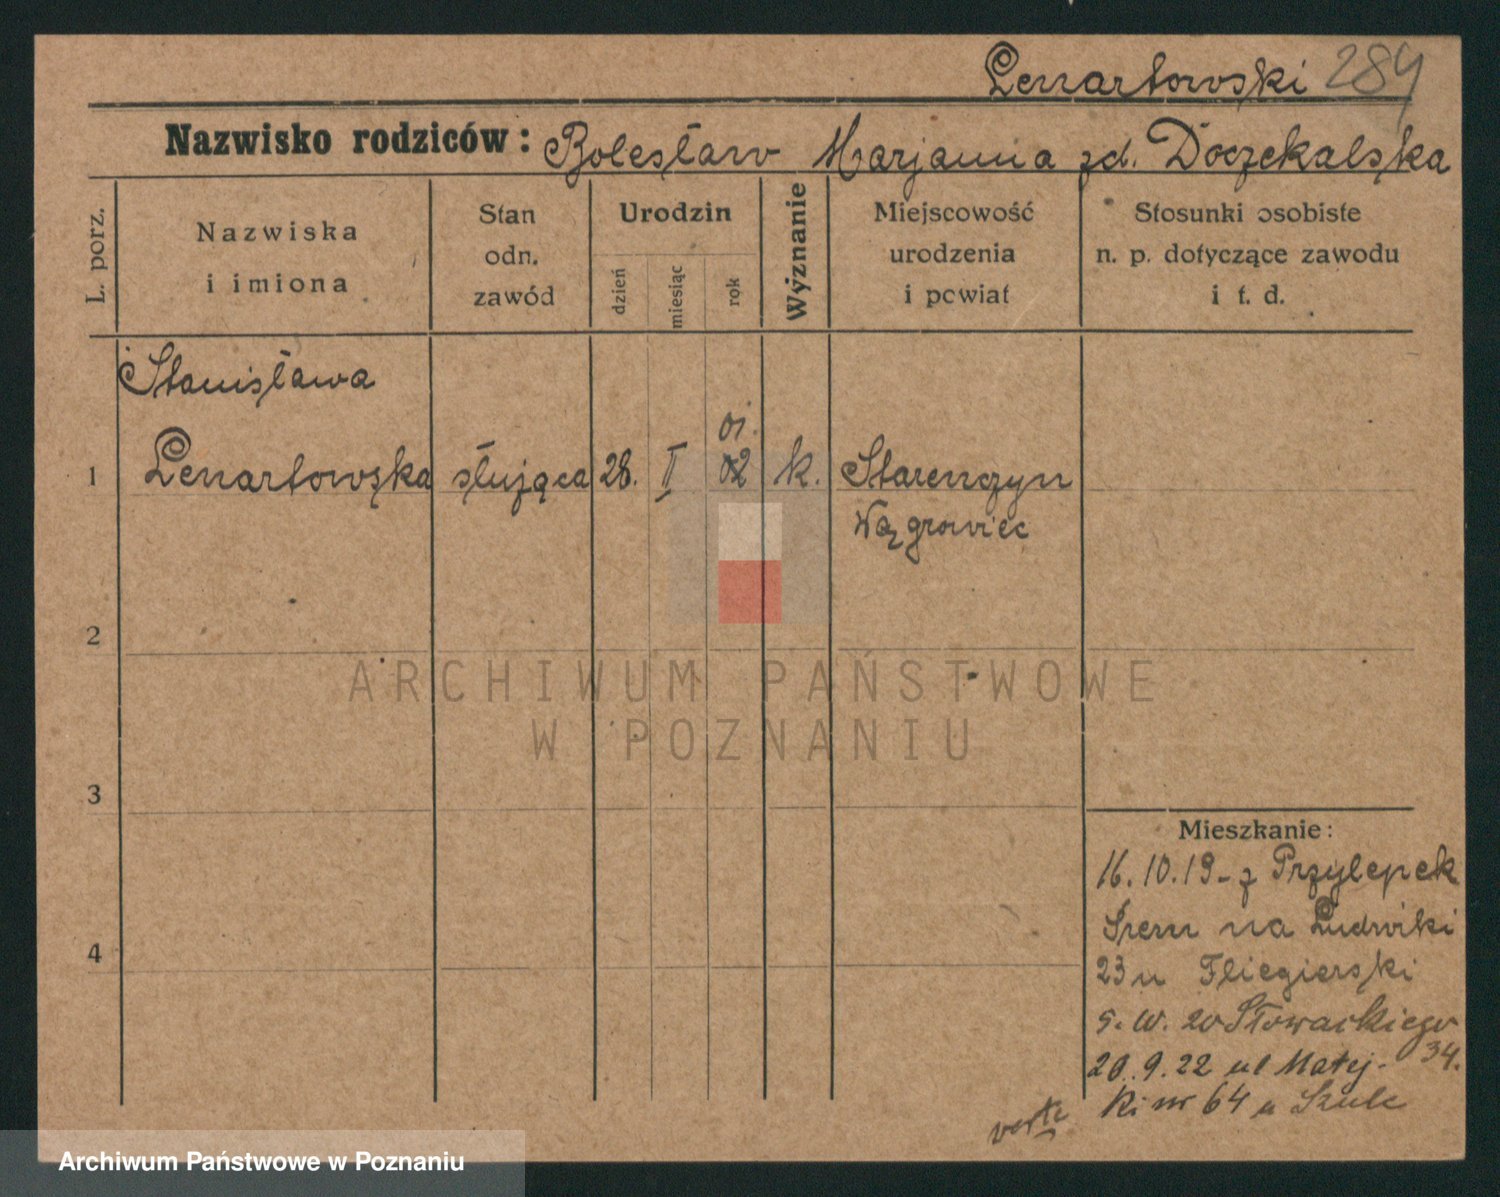 Lenartowski 284
Nazwisko rodziców: Bolesław Marjanna zd. Doczekalska
L. porz.
Nazwiska
i imiona
Stan
odn.
zawód
Urodzin
dzień
miesiąc
rok
Wyznanie
Miejscowość
urodzenia
i powiat
Stosunki osobiste
n. p. dotyczące zawodu
i t. d.
Stanisława
01.
1 Lenartowska służąca 28. II 02 k. Starenczyn
Wągrowiec
2
ARCHIWUM PAŃSTWOWE
W POZNANIU
3
Mieszkanie:
16.10.19 - z Przylepek
Śrem na Ludwiki
4
23 u Fliegierski
5. W. 20 Słowackiego
34.
20.9.22 ul Matej-
ki nr 64 u Szulc
verte
Archiwum Państwowe w Poznaniu